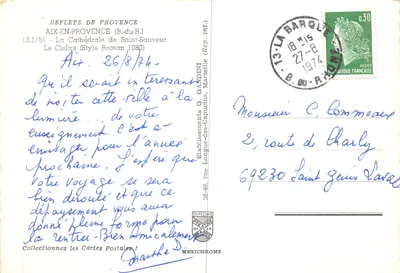 REFLETS DE PROVENCE
AIX-EN-PROVENCE (B.-du-R.)
13.1/51 - La Cathédrale de Saint-Sauveur
Le Cloître (Style Roman 1080)
Aix. 26/8/74.
Qu'il serait intéressant
de visiter cette ville à la
lumière ... de votre
enseignement. C'est à
envisager pour l'année
prochaine. J'espère que
votre voyage se sera
bien déroulé et que ce
dépaysement vous aura
donné pleine forme pour
la rentrée. Bien amicalement
Collectionnez les Cartes Postales !
Etablissements G. GANDINI
39-49, rue Longue-des-Capucins, Marseille (Rep. int.)
MEXICHROME
13-LA BARQUE
18H-15
27-8
1974
B. DU RHONE
0,30
REPUBLIQUE FRANÇAISE
Monsieur C. Commeaux
2, route de Charly
69230 Saint Genis Laval